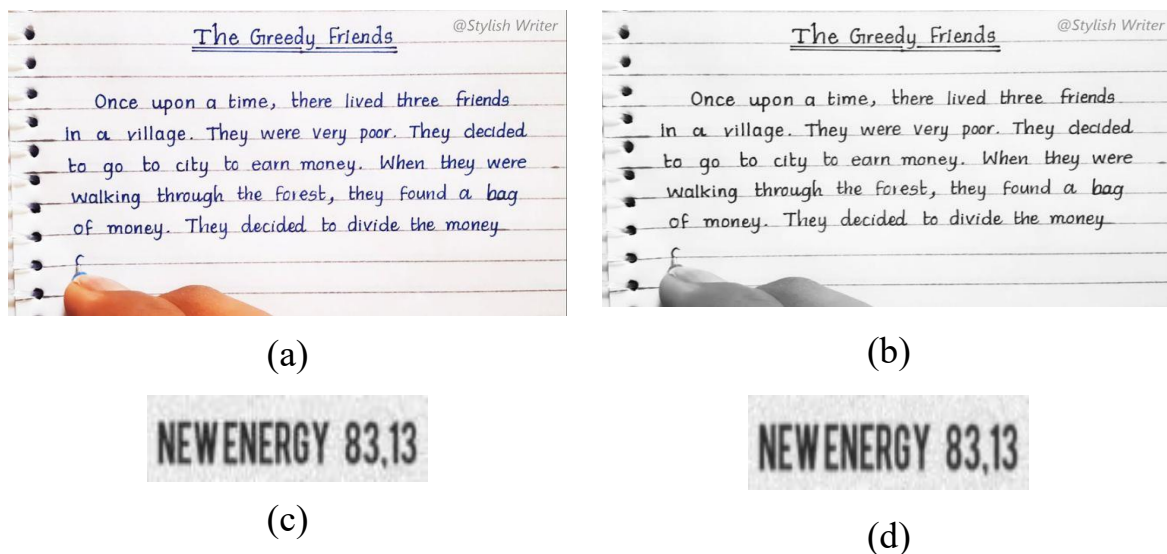 @Stylish Writer
The Greedy Friends
Once upon a time, there lived three friends
in a village. They were very poor. They decided
to go to city to earn money. When they were
walking through the forest, they found a bag
of money. They decided to divide the money
@Stylish Writer
The Greedy Friends
Once upon a time, there lived three friends
in a village. They were very poor. They decided
to go to city to earn money. When they were
walking through the forest, they found a bag
of money. They decided to divide the money
(a)
(b)
NEW ENERGY 83,13
NEW ENERGY 83,13
(c)
(d)